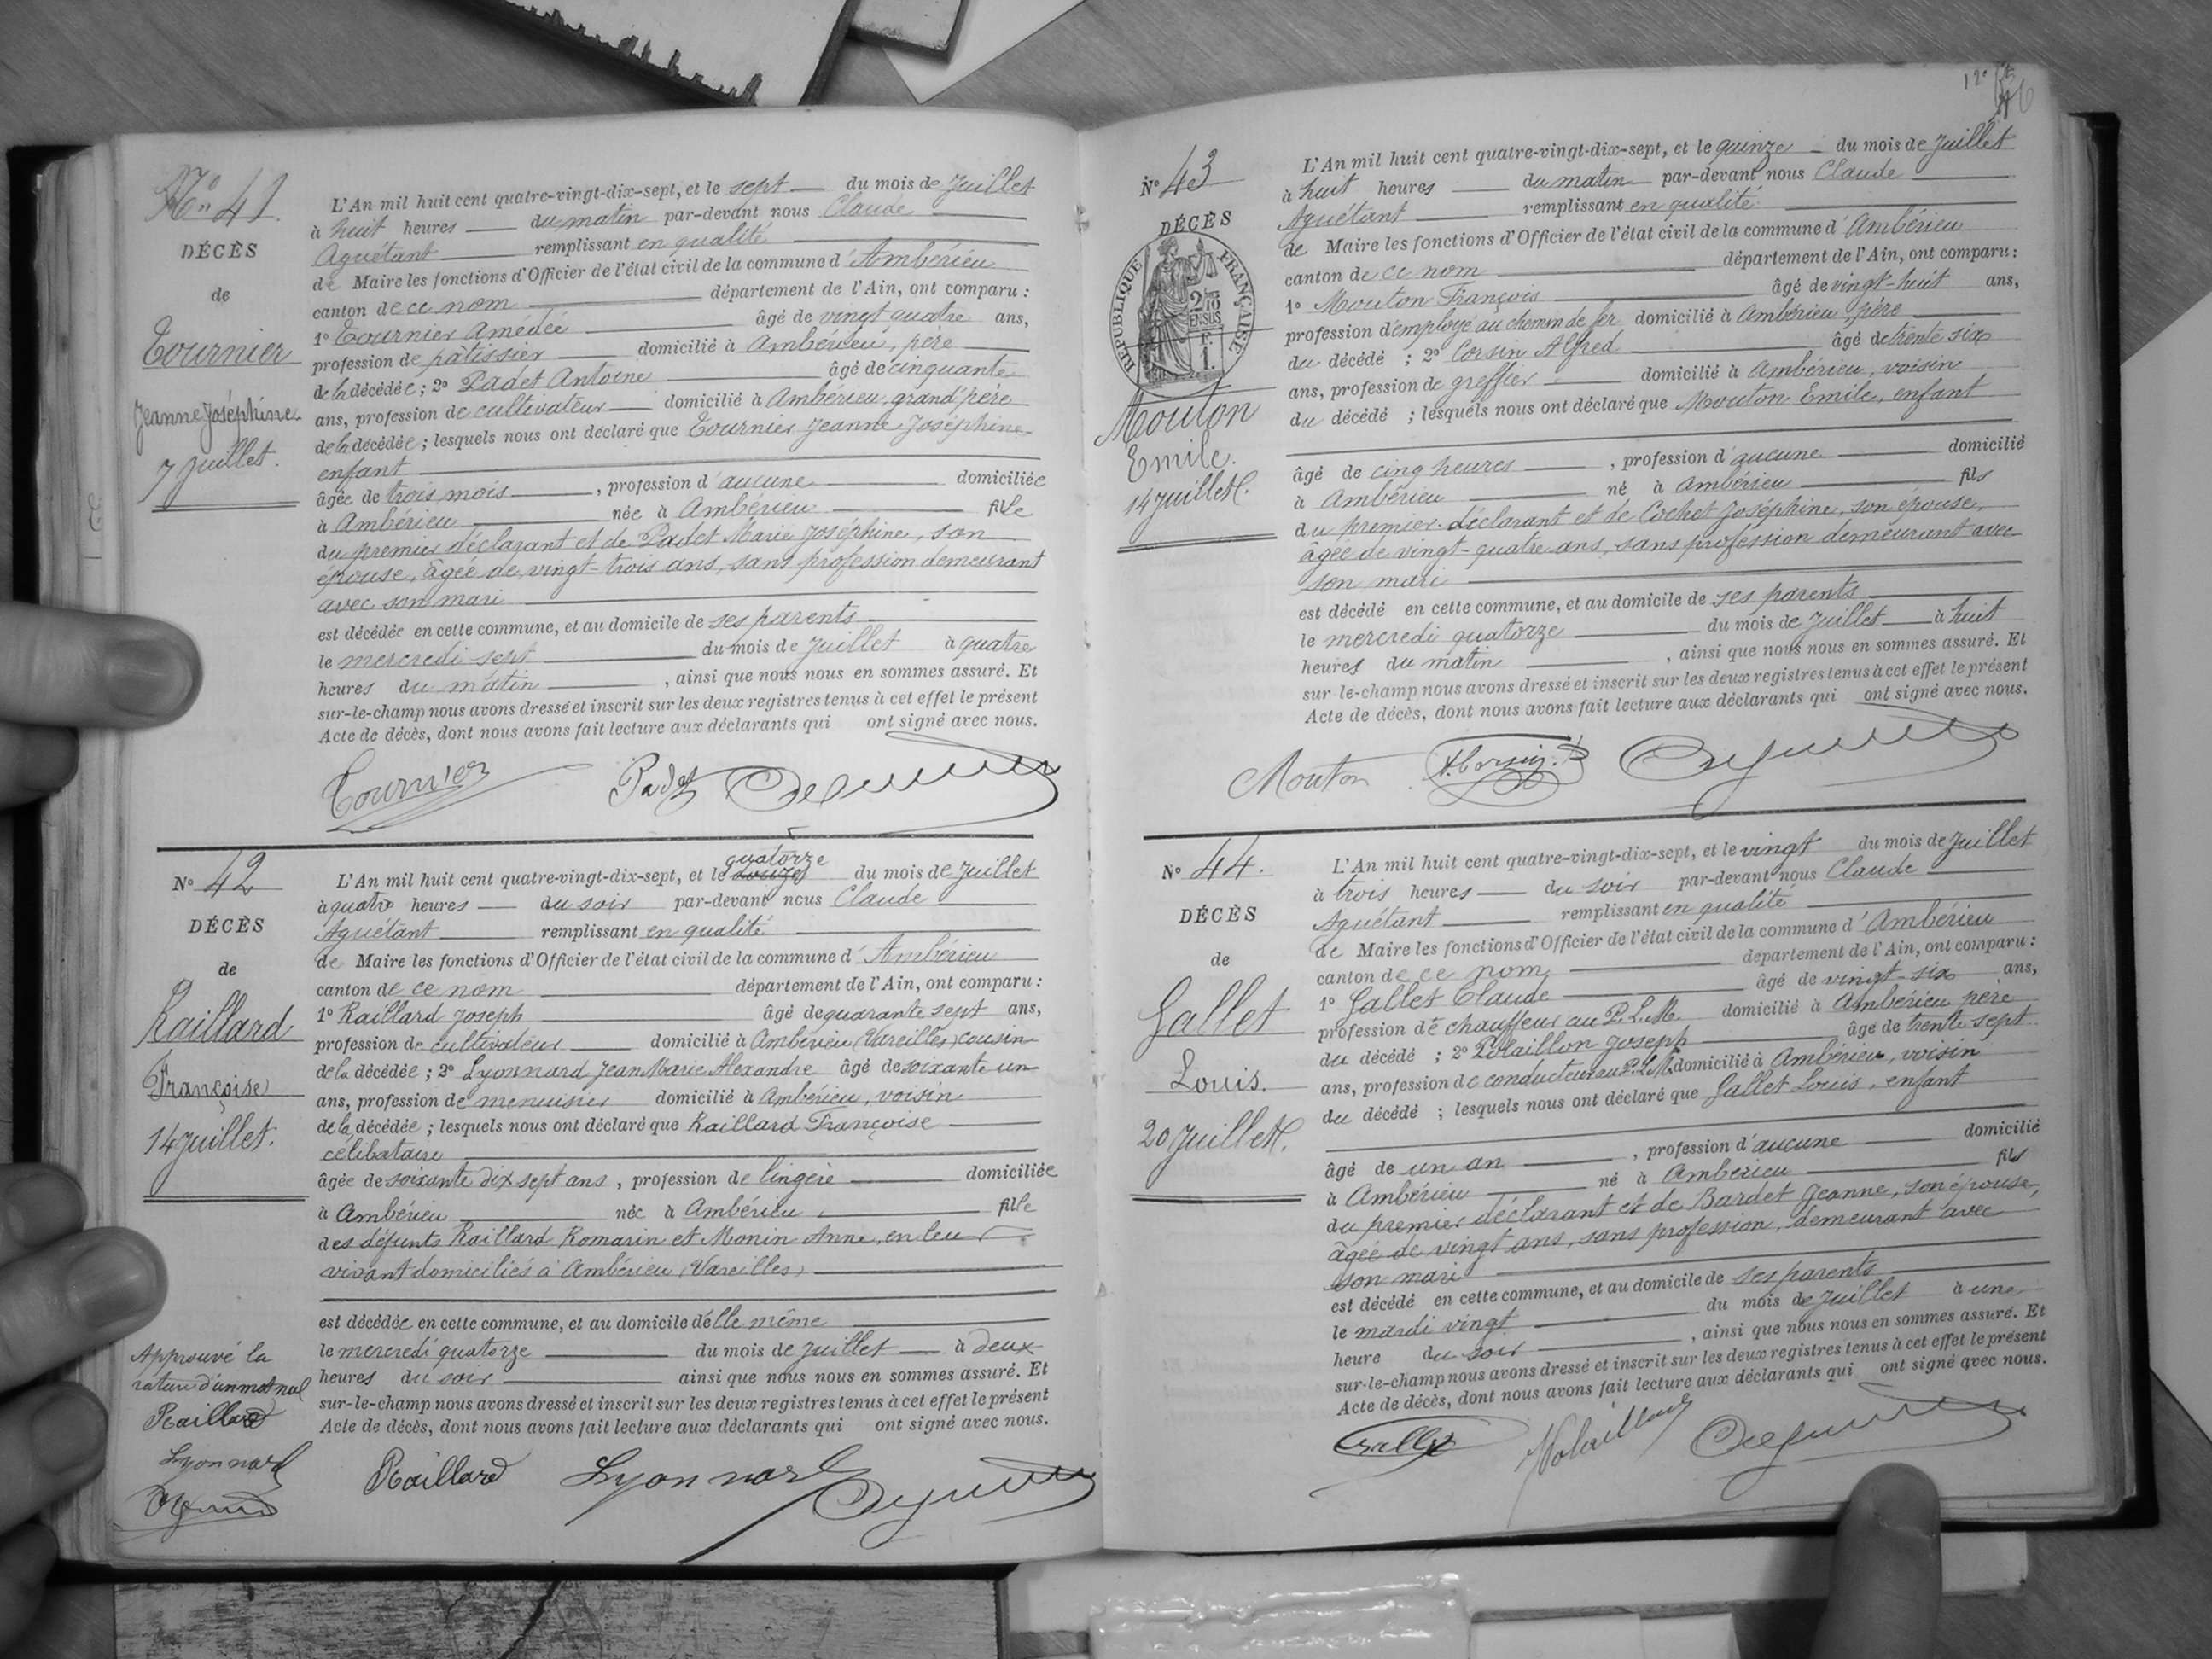 Nº 41.
DÉCÈS
de
Tournier
Jeanne Joséphine
7 juillet.
L'An mil huit cent quatre-vingt-dix-sept, et le sept du mois de juillet
à huit heures du matin par-devant nous Claude
Aguétant remplissant en qualité
de Maire les fonctions d'Officier de l'état civil de la commune d'Ambérieu
canton de ce nom département de l'Ain, ont comparu :
1º Tournier Amédée âgé de vingt quatre ans,
profession de pâtissier domicilié à Ambérieu, père
de la décédée ; 2º Padet Antoine âgé de cinquante
ans, profession de cultivateur domicilié à Ambérieu, grand père
de la décédée ; lesquels nous ont déclaré que Tournier Jeanne Joséphine
enfant
âgée de trois mois, profession d'aucune domiciliée
à Ambérieu née à Ambérieu fille
du premier déclarant et de Padet Marie Joséphine, son
épouse, âgée de vingt-trois ans, sans profession demeurant
avec son mari
est décédée en cette commune, et au domicile de ses parents
le mercredi sept du mois de juillet à quatre
heures du matin, ainsi que nous nous en sommes assuré. Et
sur-le-champ nous avons dressé et inscrit sur les deux registres tenus à cet effet le présent
Acte de décès, dont nous avons fait lecture aux déclarants qui ont signé avec nous.
Tournier Padet
Nº 42
DÉCÈS
de
Raillard
Françoise
14 juillet.
quatorze
L'An mil huit cent quatre-vingt-dix-sept, et le douze du mois de juillet
à quatre heures du soir par-devant nous Claude
Aguétant remplissant en qualité
de Maire les fonctions d'Officier de l'état civil de la commune d'Ambérieu
canton de ce nom département de l'Ain, ont comparu :
1º Raillard Joseph âgé de quarante sept ans,
profession de cultivateur domicilié à Ambérieu (Vareilles) cousin
de la décédée ; 2º Lyonnard Jean Marie Alexandre âgé de soixante un
ans, profession de menuisier domicilié à Ambérieu, voisin
de la décédée ; lesquels nous ont déclaré que Raillard Françoise
célibataire
âgée de soixante dix sept ans, profession de lingère domiciliée
à Ambérieu née à Ambérieu fille
des défunts Raillard Romarin et Monin Anne, en leur
vivant domiciliés à Ambérieu (Vareilles)
est décédée en cette commune, et au domicile d'elle même
le mercredi quatorze du mois de juillet à deux
heures du soir ainsi que nous nous en sommes assuré. Et
sur-le-champ nous avons dressé et inscrit sur les deux registres tenus à cet effet le présent
Acte de décès, dont nous avons fait lecture aux déclarants qui ont signé avec nous.
Approuvé la
rature d'un mot nul
Raillard
Lyonnard
Raillard Lyonnard
12º
Nº 43
DÉCÈS
RÉPUBLIQUE FRANÇAISE
Mouton
Emile.
14 juillet.
L'An mil huit cent quatre-vingt-dix-sept, et le quinze du mois de juillet
à huit heures du matin par-devant nous Claude
Aguétant remplissant en qualité
de Maire les fonctions d'Officier de l'état civil de la commune d'Ambérieu
canton de ce nom département de l'Ain, ont comparu :
1º Mouton François âgé de vingt-huit ans,
profession d'employé au chemin de fer domicilié à Ambérieu, père
du décédé ; 2º Corsin Alfred âgé de trente six
ans, profession de greffier domicilié à Ambérieu, voisin
du décédé ; lesquels nous ont déclaré que Mouton Emile, enfant
âgé de cinq heures, profession d'aucune domicilié
à Ambérieu né à Ambérieu fils
du premier déclarant et de Cochet Joséphine, son épouse,
âgée de vingt-quatre ans, sans profession demeurant avec
son mari
est décédé en cette commune, et au domicile de ses parents
le mercredi quatorze du mois de juillet à huit
heures du matin, ainsi que nous nous en sommes assuré. Et
sur-le-champ nous avons dressé et inscrit sur les deux registres tenus à cet effet le présent
Acte de décès, dont nous avons fait lecture aux déclarants qui ont signé avec nous.
Mouton A. Corsin
Nº 44.
DÉCÈS
de
Gallet
Louis.
20 juillet.
L'An mil huit cent quatre-vingt-dix-sept, et le vingt du mois de juillet
à trois heures du soir par-devant nous Claude
Aguétant remplissant en qualité
de Maire les fonctions d'Officier de l'état civil de la commune d'Ambérieu
canton de ce nom département de l'Ain, ont comparu :
1º Gallet Claude âgé de vingt-six ans,
profession de chauffeur au P.L.M. domicilié à Ambérieu père
du décédé ; 2º Polaillon Joseph âgé de trente sept
ans, profession de conducteur au P.L.M. domicilié à Ambérieu, voisin
du décédé ; lesquels nous ont déclaré que Gallet Louis, enfant
âgé de un an, profession d'aucune domicilié
à Ambérieu né à Ambérieu fils
du premier déclarant et de Bardet Jeanne, son épouse,
âgée de vingt ans, sans profession, demeurant avec
son mari
est décédé en cette commune, et au domicile de ses parents
le mardi vingt du mois de juillet à une
heure du soir, ainsi que nous nous en sommes assuré. Et
sur-le-champ nous avons dressé et inscrit sur les deux registres tenus à cet effet le présent
Acte de décès, dont nous avons fait lecture aux déclarants qui ont signé avec nous.
Polaillon